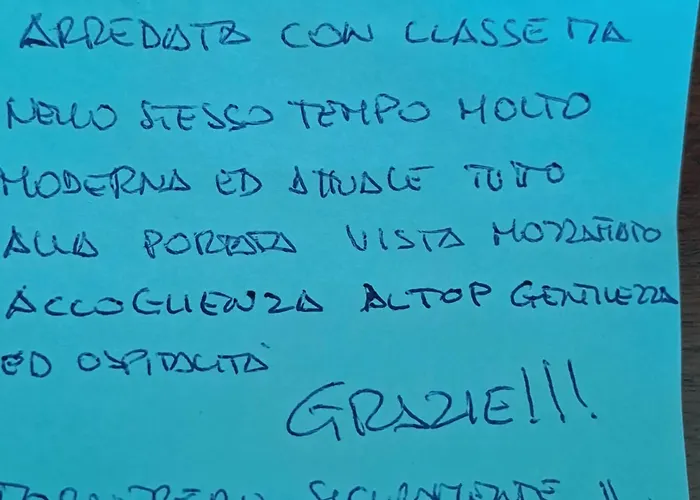 ARREDATA CON CLASSE MA
NELLO STESSO TEMPO MOLTO
MODERNA ED ATTUALE TUTTO
ALLA PORTATA VISTA MOZZAFIATO
ACCOGLIENZA AL TOP GENTILEZZA
ED OSPITALITÀ
GRAZIE!!!
TORNEREMO SICURAMENTE !!